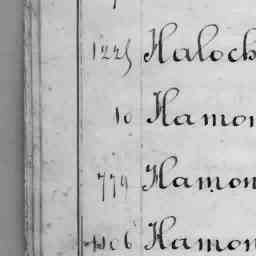 1225 Haloch
10 Hamon
779 Hamon
1106 Hamon